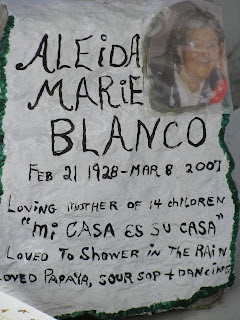 ALEIDA
MARIE
BLANCO
FEB 21 1928-MAR 8 2007
LOVING MOTHER OF 14 CHILDREN
"Mi CASA ES SU CASA"
LOVED TO SHOWER IN THE RAIN
LOVED PAPAYA, SOUR SOP + DANCING